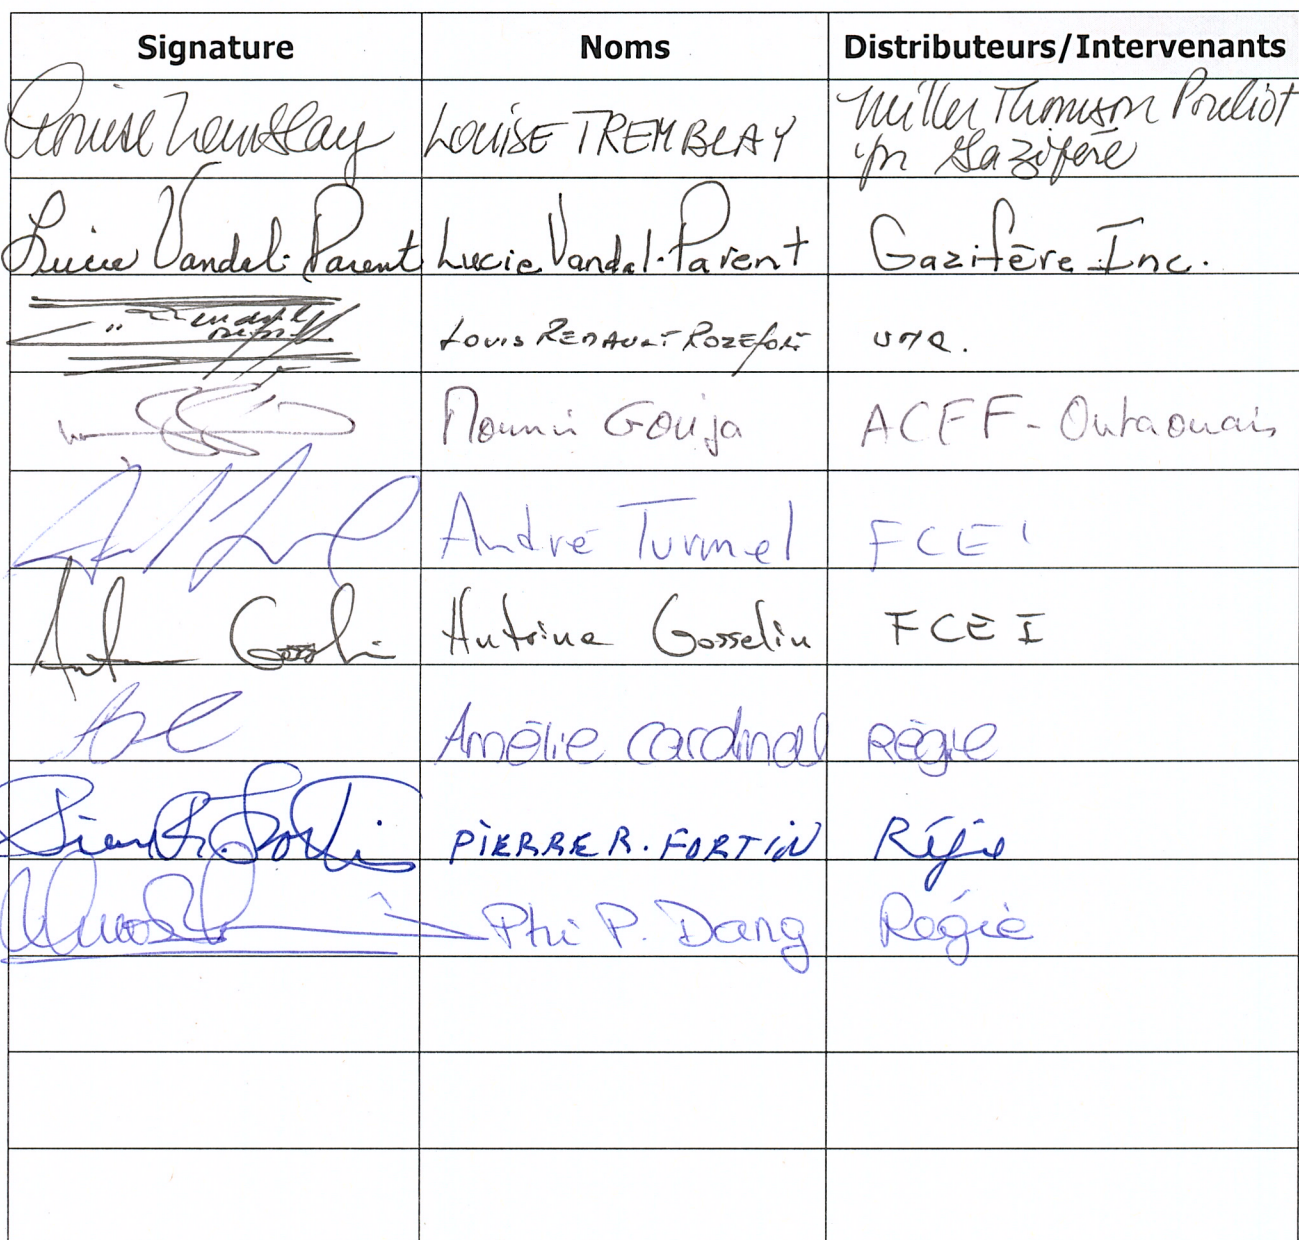 Signature Noms Distributeurs/Intervenants
Louise Tremblay LOUISE TREMBLAY Miller Thomson Pouliot
pr Gazifère
Lucie Vandal-Parent Lucie Vandal-Parent Gazifère Inc.
Louis REDAULT ROZEFORT UMQ.
Mounir Gouja ACEF-Outaouais
André Turmel FCEI
Antoine Gosselin FCEI
Amélie Cardinal Régie
Pierre R. Fortin PIERRE R. FORTIN Régie
Phi P. Dang Régie